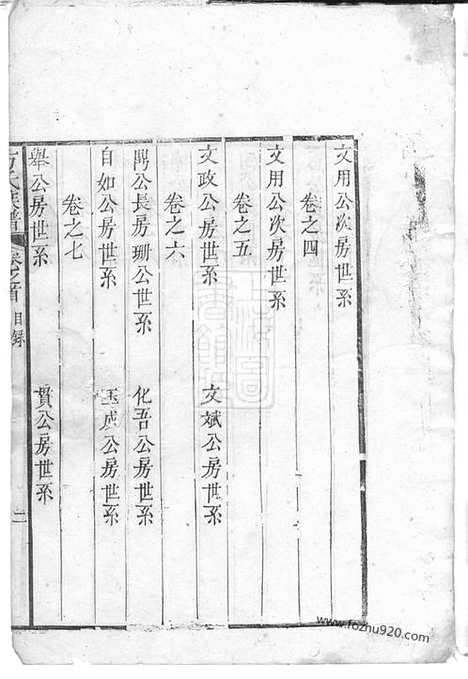 文用公次房世系
卷之四
文用公次房世系
卷之五
文政公房世系 文斌公房世系
卷之六
鵾公長房珊公世系 化吾公房世系
自如公房世系 玉成公房世系
卷之七
舉公房世系 貫公房世系
氏族譜 卷之首 目錄 二
www.fozhu920.com